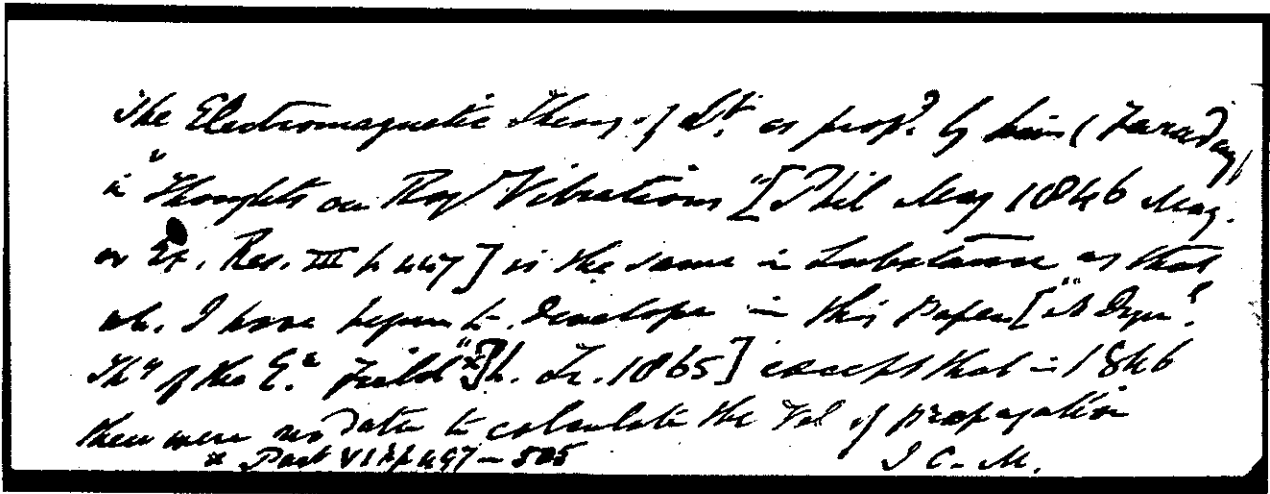 The Electromagnetic Theory of Lt. as propd. by him (Faraday)
in "Thoughts on Ray Vibrations" [Phil Mag 1846 May.
or Ex. Res. III p 447] is the same in Substance as that
wh. I have begun to develope in this Paper ["A Dynl.
Thy of the E.c Field" * Ph. Tr. 1865] except that in 1846
there were no data to calculate the Vel of propagation
* Part VI pp 497 – 505 J C. M.